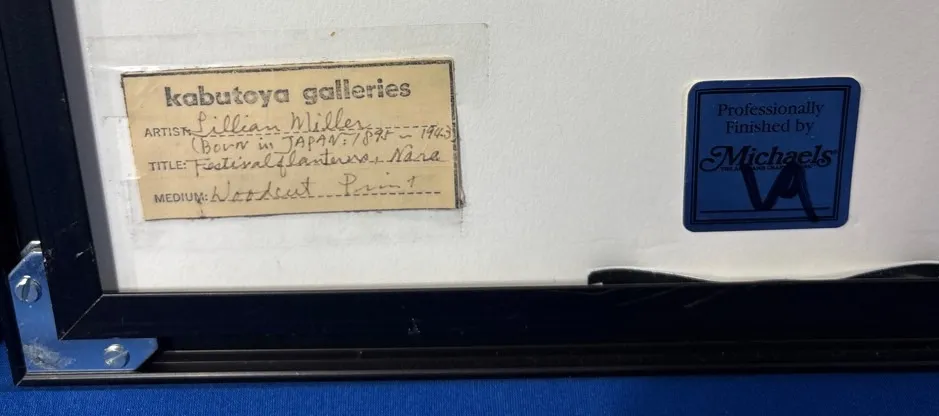 kabutoya galleries
ARTIST: Lillian Miller
(Born in JAPAN: 1895 - 1943)
TITLE: Festival of lanterns, Nara
MEDIUM: Woodcut Print
Professionally
Finished by
Michaels